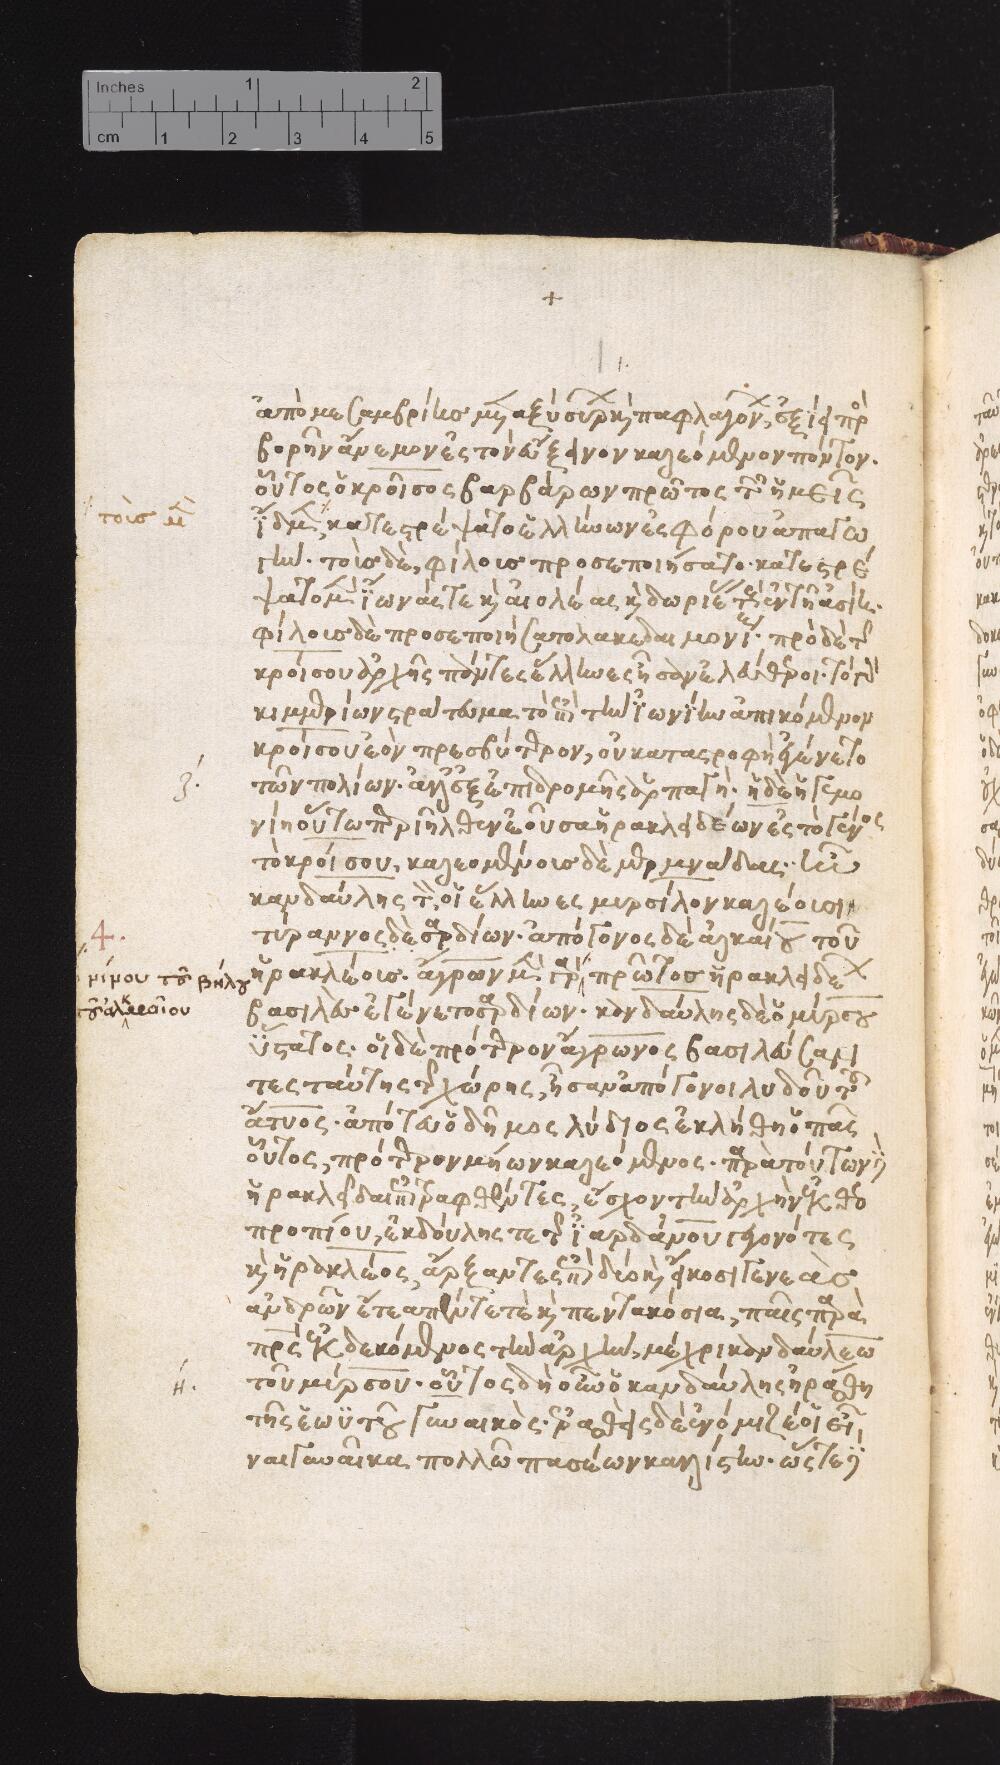 Inches 1 2
cm 1 2 3 4 5
+
ἀπὸ μεσαμβρίης μεταξὺ σύρων καὶ παφλαγόνων, ἐξίει πρὸς
βορῆν ἄνεμον ἐς τὸν εὔξεινον καλεόμενον πόντον.
οὗτος ὁ κροῖσος βαρβάρων πρῶτος τῶν ἡμεῖς
τοὺσ μὲν
ἴδμεν κατεστρέψατο ἑλλήνων ἐς φόρου ἀπαγω
γήν. τοὺσ δὲ, φίλουσ προσεποιήσατο. κατεστρέ
ψατο μὲν ἴωνάς τε καὶ αἰολέας καὶ δωριέας τοὺς ἐν τῇ ἀσίῃ.
φίλους δὲ προσεποιήσατο λακεδαιμονίους. πρὸ δὲ τῆς
κροίσου ἀρχῆς πάντες ἕλληνες ἦσαν ἐλεύθεροι. τὸ γὰρ
κιμμερίων στράτευμα τὸ ἐπὶ τὴν ἰωνίην ἀπικόμενον
κροίσου ἐὸν πρεσβύτερον, οὐ καταστροφὴ ἐγένετο
ζ.
τῶν πολίων. ἀλλ' ἐξ ἐπιδρομῆς ἁρπαγή. ἡ δὲ ἡγεμο
νίη οὕτω περιῆλθεν ἐοῦσα ἡρακλειδέων ἐς τὸ γένος
τὸ κροίσου, καλεομένους δὲ μερμνάδας. ἦν
κανδαύλης τὸν οἱ ἕλληνες μυρσίλον καλέουσι,
4.
τύραννος δὲ σαρδίων. ἀπόγονος δὲ ἀλκαίου τοῦ
νίνου τοῦ βήλου
ἡρακλέους. ἄγρων μὲν γὰρ πρῶτος ἡρακλειδέων
τοῦ ἀλκαίου
βασιλεὺς ἐγένετο σαρδίων. κανδαύλης δὲ ὁ μύρσου
ὕστατος. οἱ δὲ πρότερον ἄγρωνος βασιλεύσαν
τες ταύτης τῆς χώρης, ἦσαν ἀπόγονοι λυδοῦ τοῦ
ἄτυος. ἀπό τευ ὁ δῆμος λύδιος ἐκλήθη ὁ πᾶς
οὗτος, πρότερον μηίων καλεόμενος. παρὰ τούτων
ἡρακλεῖδαι ἐπιτραφθέντες, ἔσχον τὴν ἀρχὴν ἐκ θεο
προπίου, ἐκ δούλης τε τῆς ἰαρδάνου γεγονότες
καὶ ἡρακλέος, ἄρξαντες ἐπὶ δύο καὶ εἴκοσι γενεὰσ
ἀνδρῶν ἔτεα πέντε τὲ καὶ πεντακόσια, παῖς παρὰ
πατρὸς ἐκδεκόμενος τὴν ἀρχήν, μέχρι κανδαύλεω
η.
τοῦ μύρσου. οὗτος δὴ ὦν ὁ κανδαύλης ἠράσθη
τῆς ἑωυτοῦ γυναικός. ἐρασθεὶς δὲ ἐνόμιζέ οἱ εἶ
ναι γυναῖκα πολλὸν πασέων καλλίστην. ὥστε